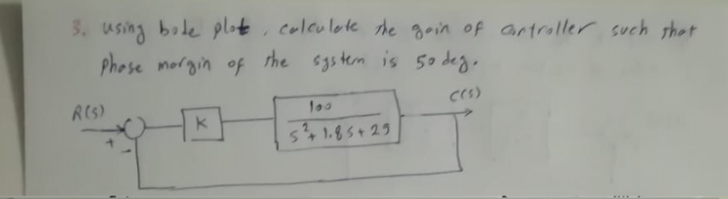 3. using bode plot, calculate the gain of controller such that
phase margin of the system is 50 deg.
R(s)
+
-
K
100
s²+1.8s+29
C(s)